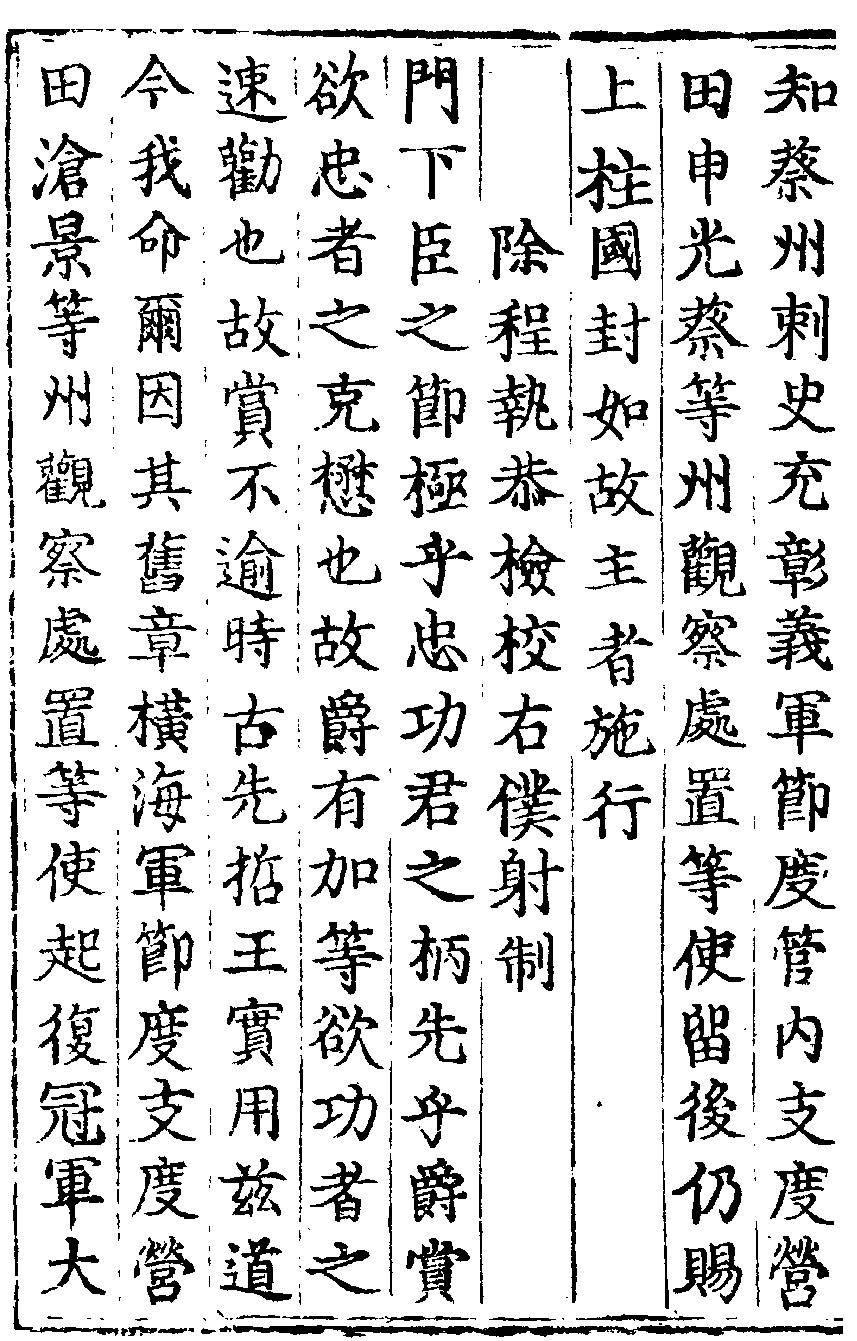 知蔡州刺史充彰義軍節度管内支度營
田申光蔡等州觀察處置等使留後仍賜
上柱國封如故主者施行
除程執恭檢校右僕射制
門下臣之節極乎忠功君之柄先乎爵賞
欲忠者之克懋也故爵有加等欲功者之
速勸也故賞不逾時古先哲王實用兹道
今我命爾因其舊章橫海軍節度支度營
田滄景等州觀察處置等使起復冠軍大